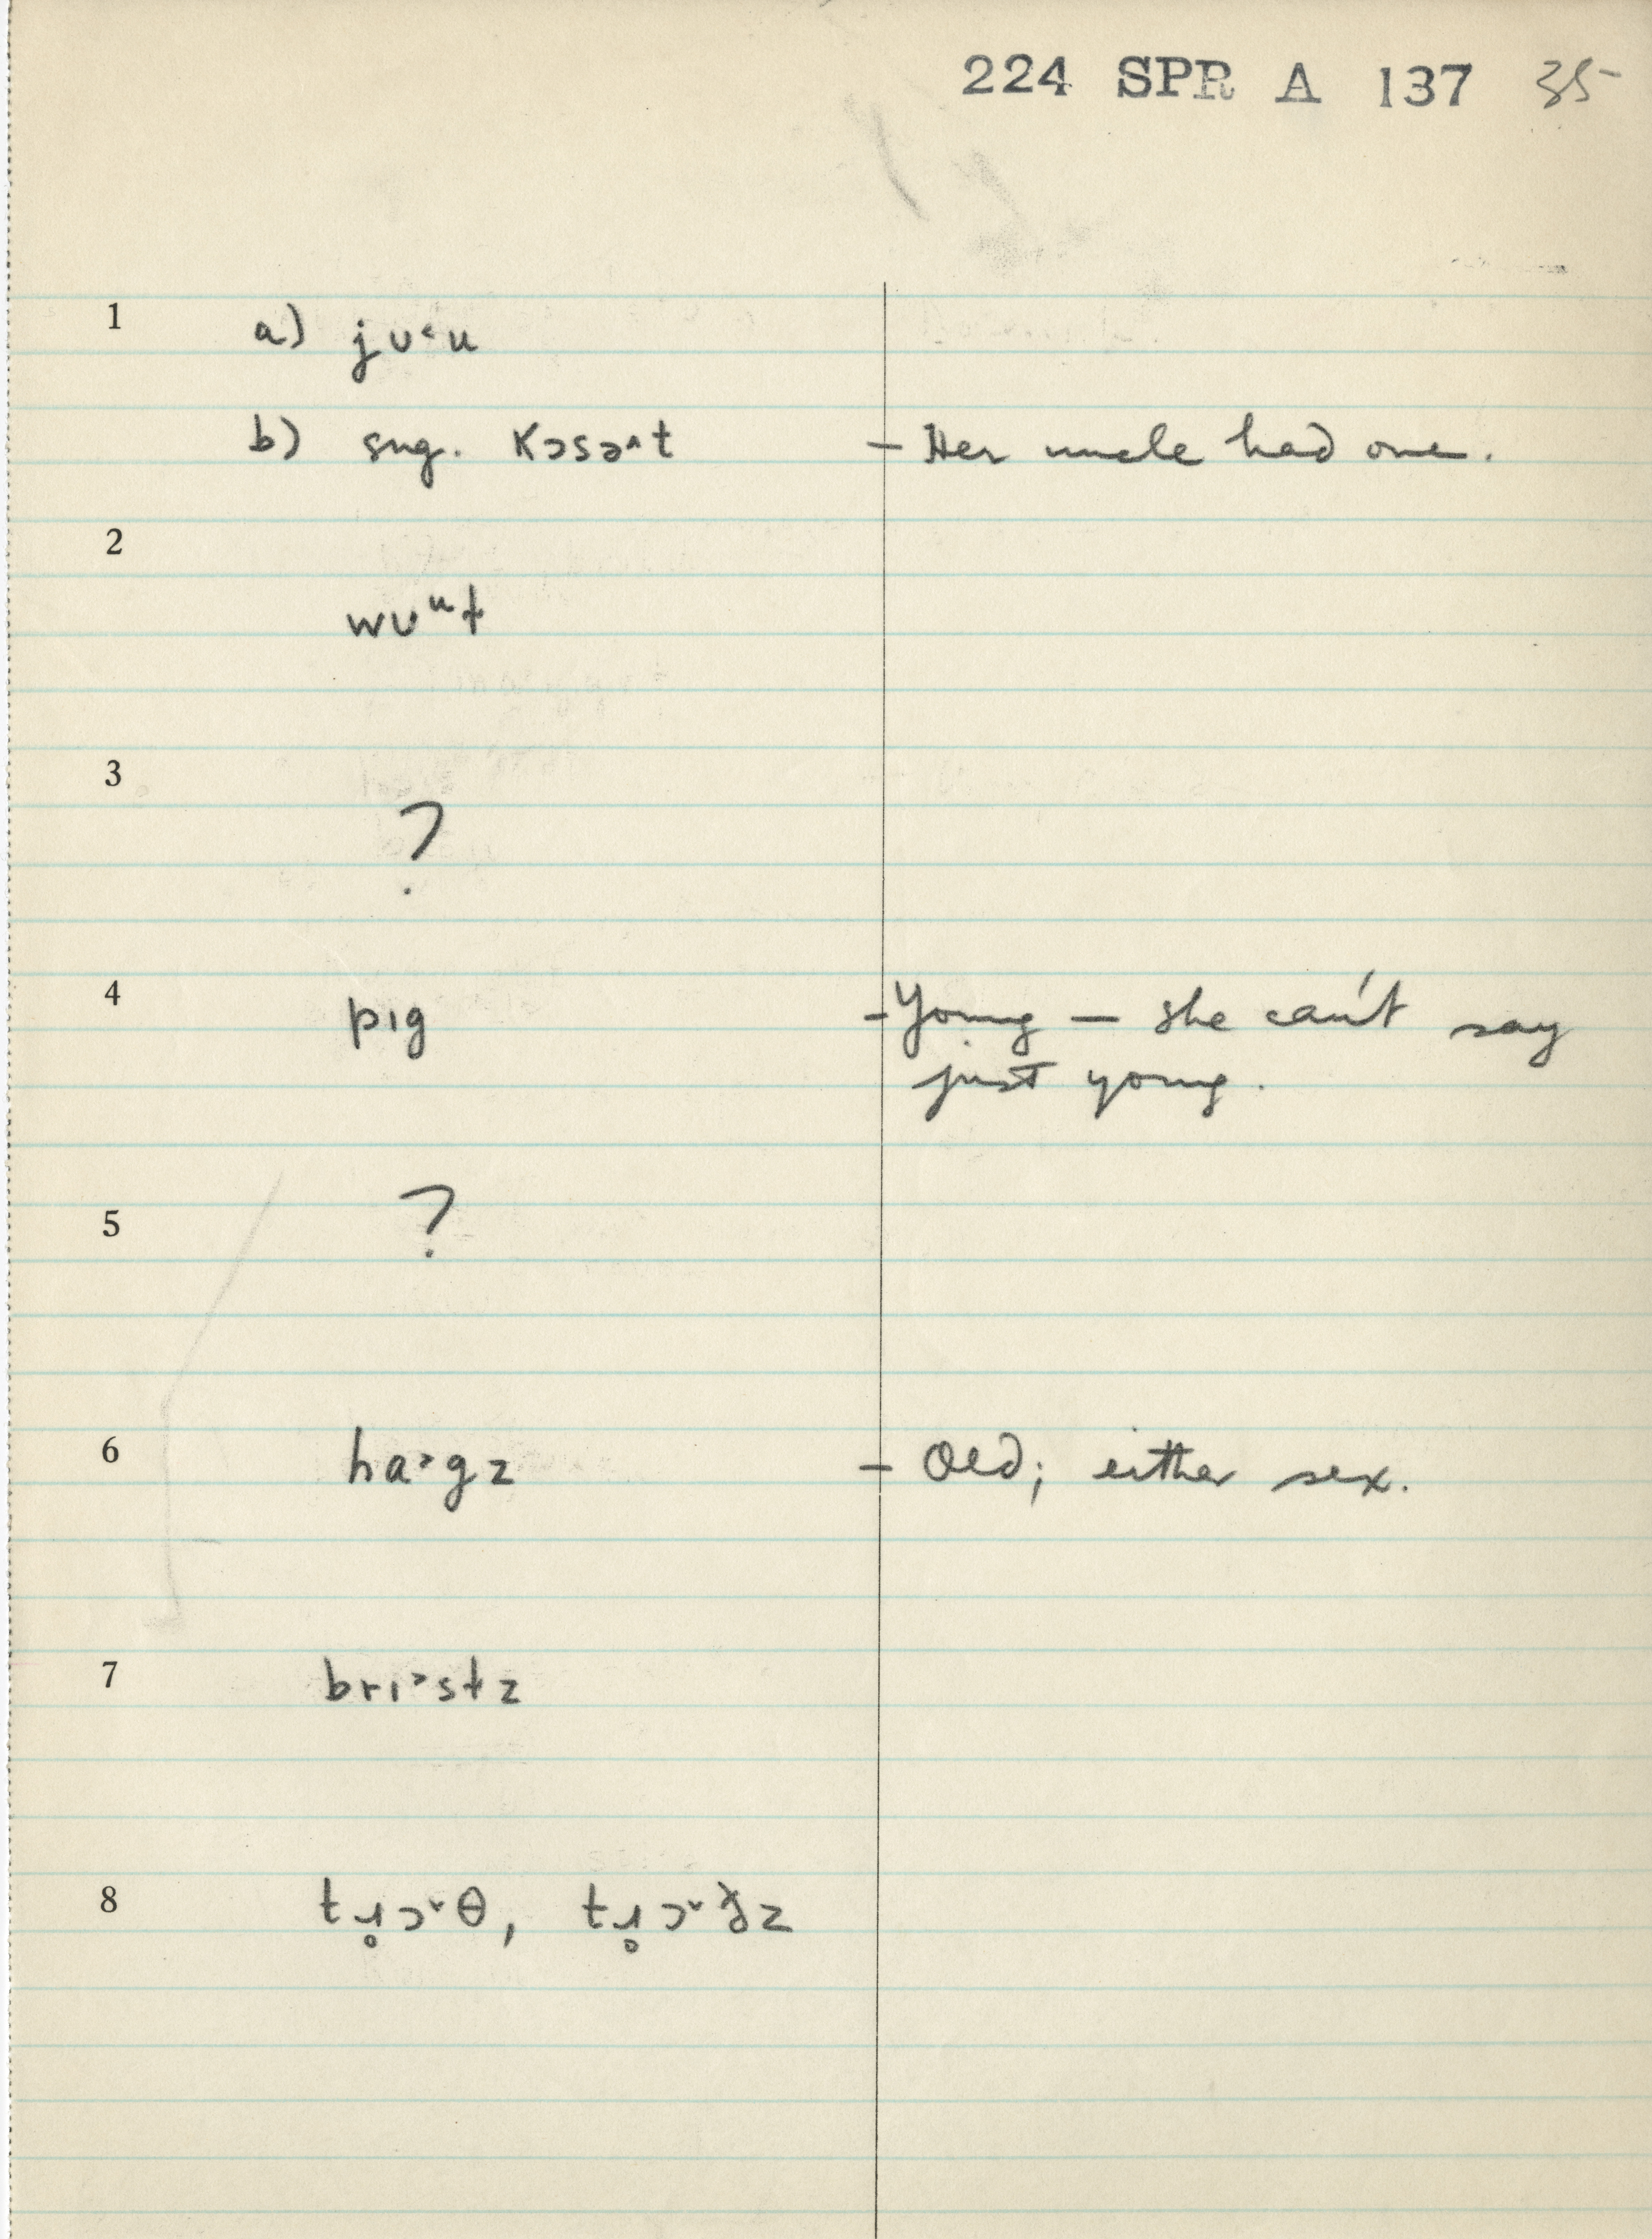 224 SPR A 137 35
1 a) jʊ˂u
b) sug. kɔsə˄t - Her uncle had one.
2
wʊᵘɫ
3
?
4 pɪg - Young — she can't say
just young.
5 ?
6 ha˃gz - Old; either sex.
7 brɪ˃stɫz
8 tɹ̥ɔ˅θ, tɹ̥ɔ˅ðz